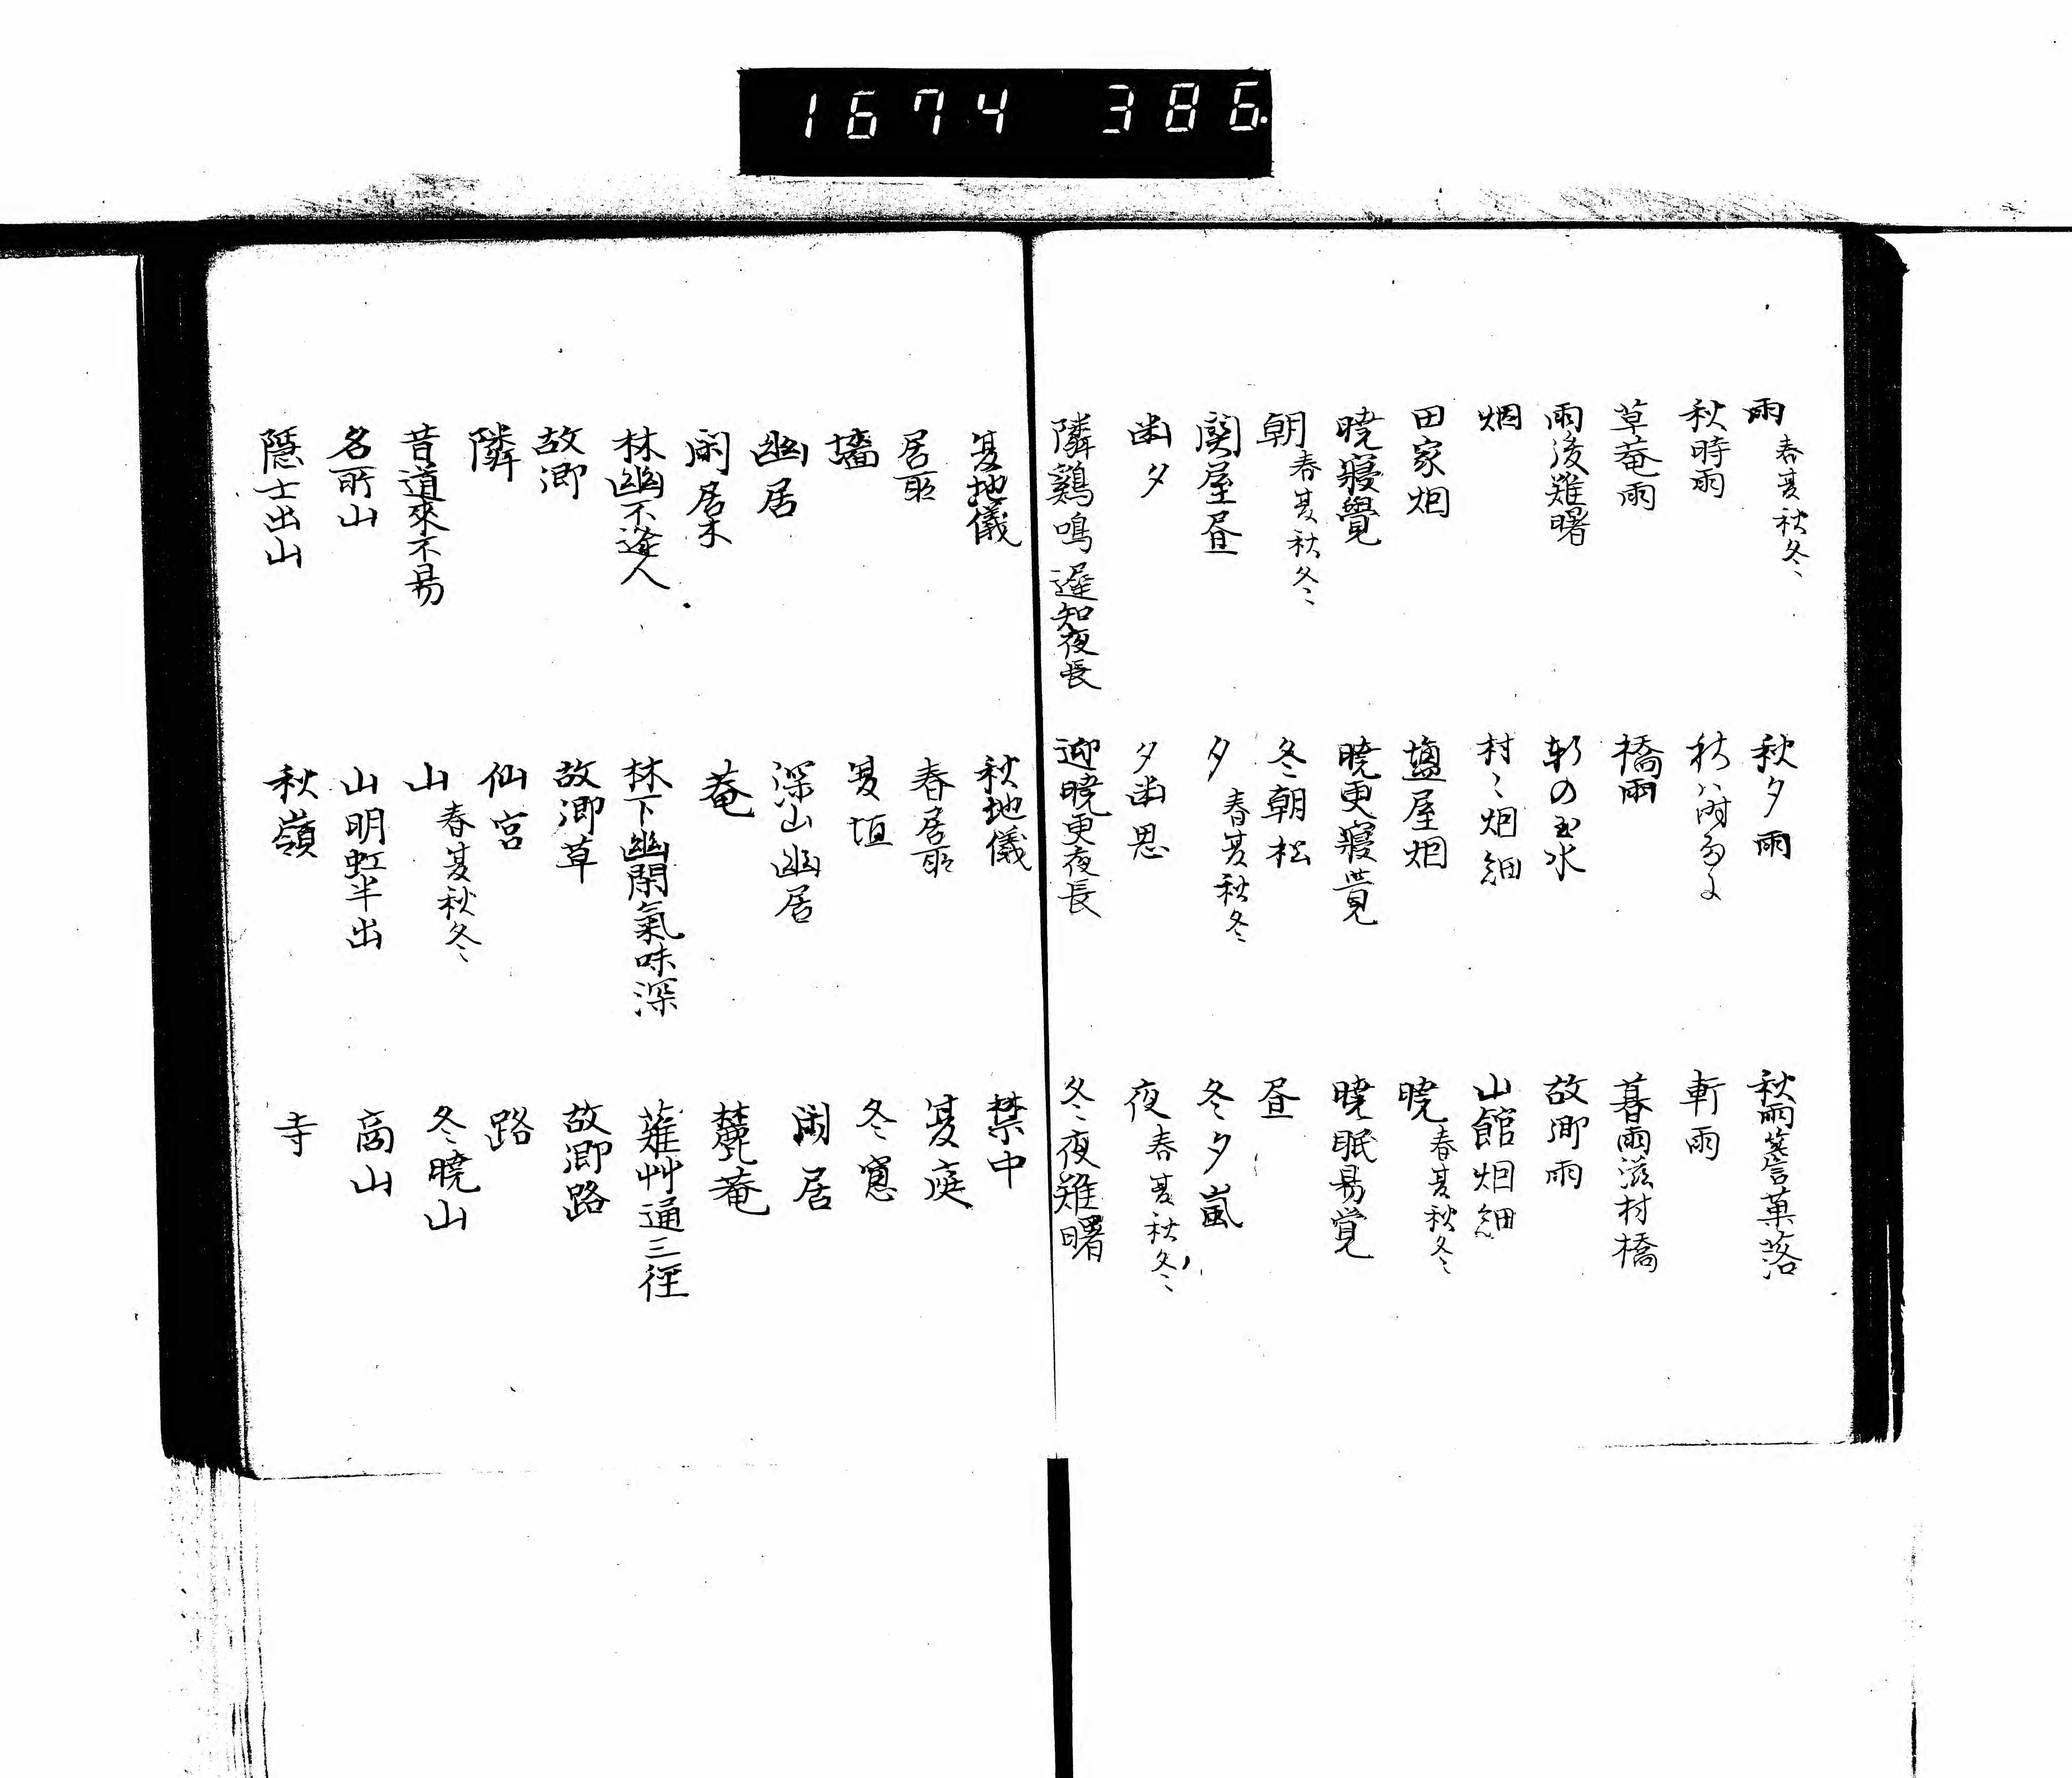 1674 386.
雨 春夏秋冬 秋夕雨 秋雨簷菓落
秋時雨 秋ハ 軒雨
草菴雨 橋雨 暮雨滋村橋
雨後難曙 軒の玉水 故郷雨
烟 村〻烟細 山館烟細
田家烟 塩屋烟 暁 春夏秋冬
暁寝覺 暁更寝覚 暁眠易覚
朝 春夏秋冬 冬朝松 昼
関屋昼 夕 春夏秋冬 冬夕嵐
幽夕 夕幽思 夜 春夏秋冬
隣鷄鳴遅知夜長 迎暁更夜長 冬夜難曙
夏地儀 秋地儀 禁中
居所 春居所 夏庭
墻 夏垣 冬窓
幽居 深山幽居 閑居
閑居木 菴 麓菴
林幽不逢人 林下幽閑氣味深 薙艸通三径
故郷 故郷草 故郷路
隣 仙宮 路
昔道來不易 山 春夏秋冬 冬暁山
名所山 山明虹半出 高山
隠士出山 秋嶺 寺